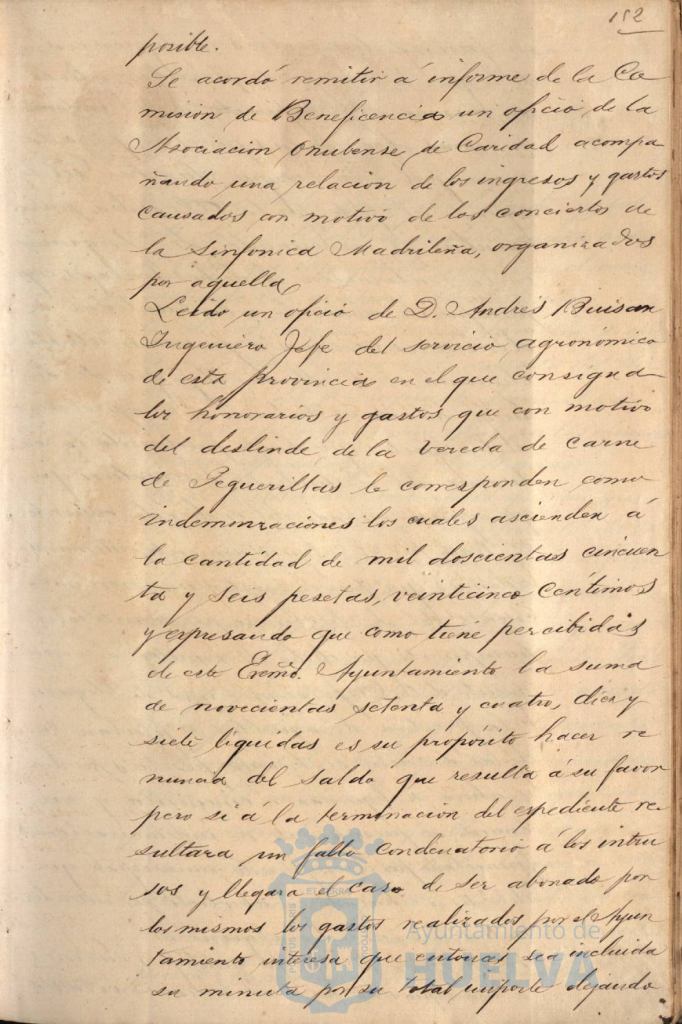 152
posible.
Se acordó remitir á informe de la Co
misión de Beneficencia un oficio de la
Asociacion Onubense de Caridad acompa
ñando una relacion de los ingresos y gastos
causados con motivo de los conciertos de
la Sinfonica Madrileña, organizados
por aquella,
Leido un oficio de D. Andrés Buisan
Ingeniero Jefe del servicio agronómico
de esta provincia en el que consigna
los honorarios y gastos que con motivo
del deslinde de la vereda de carne
de Peguerillas le corresponden como
indemnizaciones los cuales ascienden á
la cantidad de mil doscientas cincuen
ta y seis pesetas, veinticinco centimos
y expresando que como tiene percibidas
de este Excmo. Ayuntamiento la suma
de novecientas setenta y cuatro, diez y
siete liquidas es su propósito hacer re
nuncia del saldo que resulta á su favor
pero si á la terminacion del expediente re
sultara un fallo condenatorio á los intru
sos y llegara el caso de ser abonado por
los mismos los gastos realizados por el Ayun
tamiento interesa que entonces sea incluida
su minuta por su total importe dejando
Ayuntamiento de
HUELVA